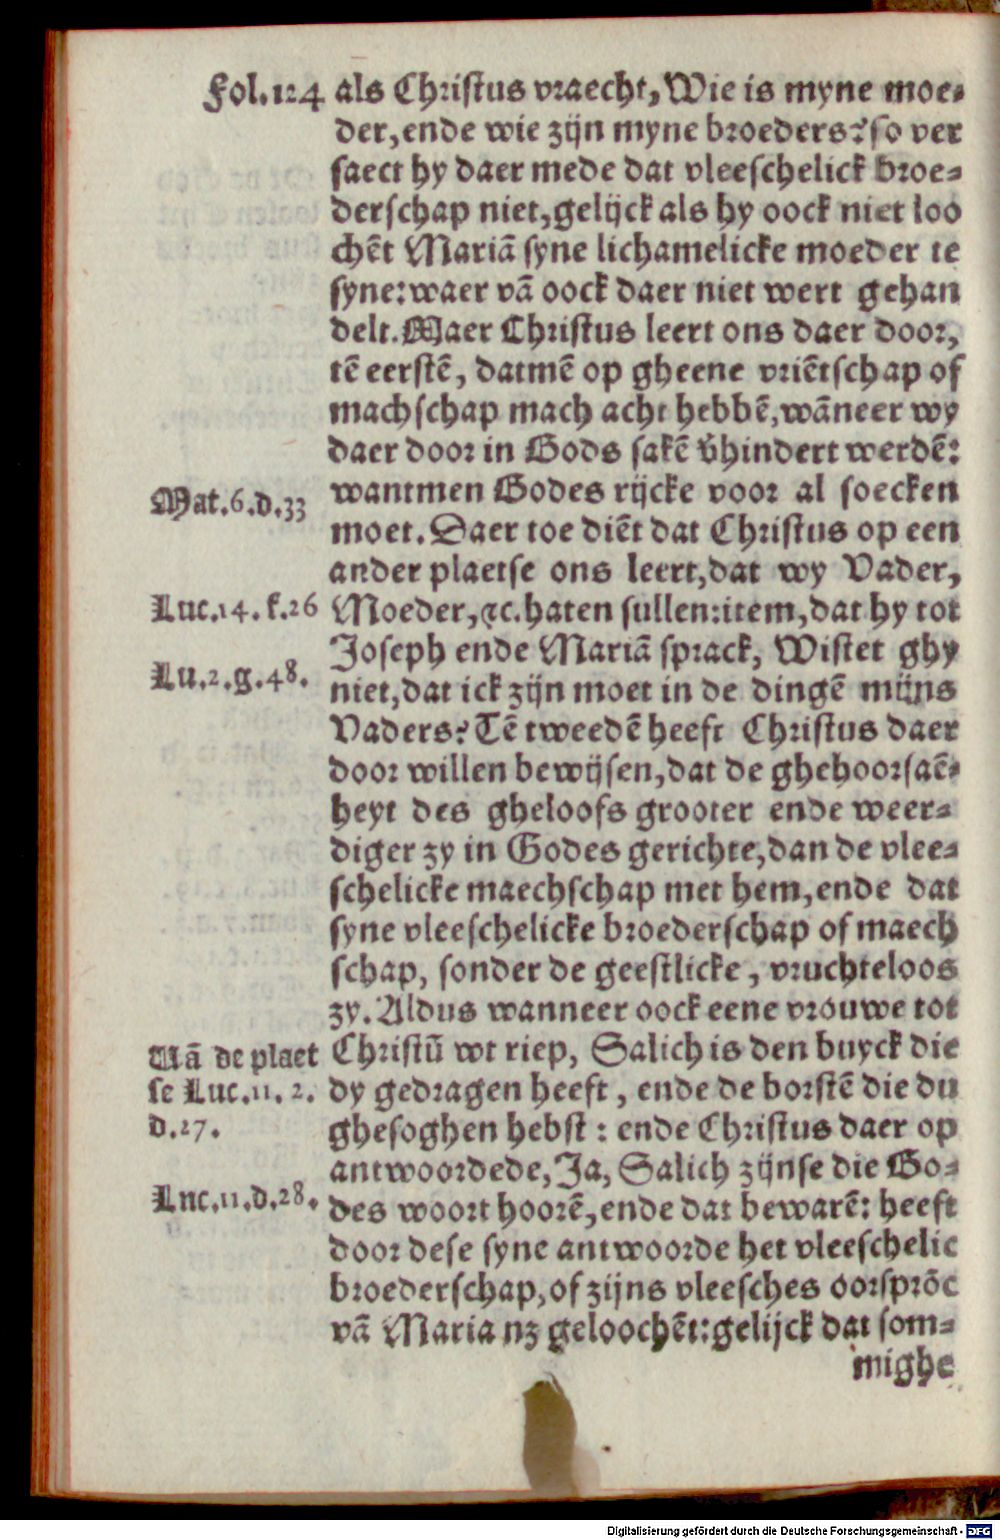 Fol.124 als Christus vraecht, Wie is myne moe-
der, ende wie zijn myne broeders? so ver
saect hy daer mede dat vleeschelick broe-
derschap niet, gelijck als hy oock niet loo
chēt Mariā syne lichamelicke moeder te
syne: waer vā oock daer niet wert gehan
delt. Maer Christus leert ons daer door,
tē eerstē, datmē op gheene vriētschap of
machschap mach acht hebbē, wāneer wy
daer door in Gods sakē v̄hindert werdē:
Mat.6.d.33 wantmen Godes rijcke voor al soecken
moet. Daer toe diēt dat Christus op een
ander plaetse ons leert, dat wy Vader,
Luc.14.f.26 Moeder, &c. haten sullen: item, dat hy tot
Joseph ende Mariā sprack, Wistet ghy
Lu.2.g.48. niet, dat ick zijn moet in de dingē mijns
Vaders? Tē tweedē heeft Christus daer
door willen bewijsen, dat de ghehoorsaē-
heyt des gheloofs grooter ende weer-
diger zy in Godes gerichte, dan de vlee-
schelicke maechschap met hem, ende dat
syne vleeschelicke broederschap of maech
schap, sonder de geestlicke, vruchteloos
zy. Aldus wanneer oock eene vrouwe tot
Uā de plaet Christū wt riep, Salich is den buyck die
se Luc.11.2. dy gedragen heeft, ende de borstē die du
d.27. ghesoghen hebst: ende Christus daer op
antwoordede, Ja, Salich zijnse die Go-
Luc.11.d.28. des woort hoorē, ende dat bewarē: heeft
door dese syne antwoorde het vleeschelic
broederschap, of zijns vleesches oorsprōc
vā Maria nz geloochēt: gelijck dat som-
mighe
Digitalisierung gefördert durch die Deutsche Forschungsgemeinschaft - DFG